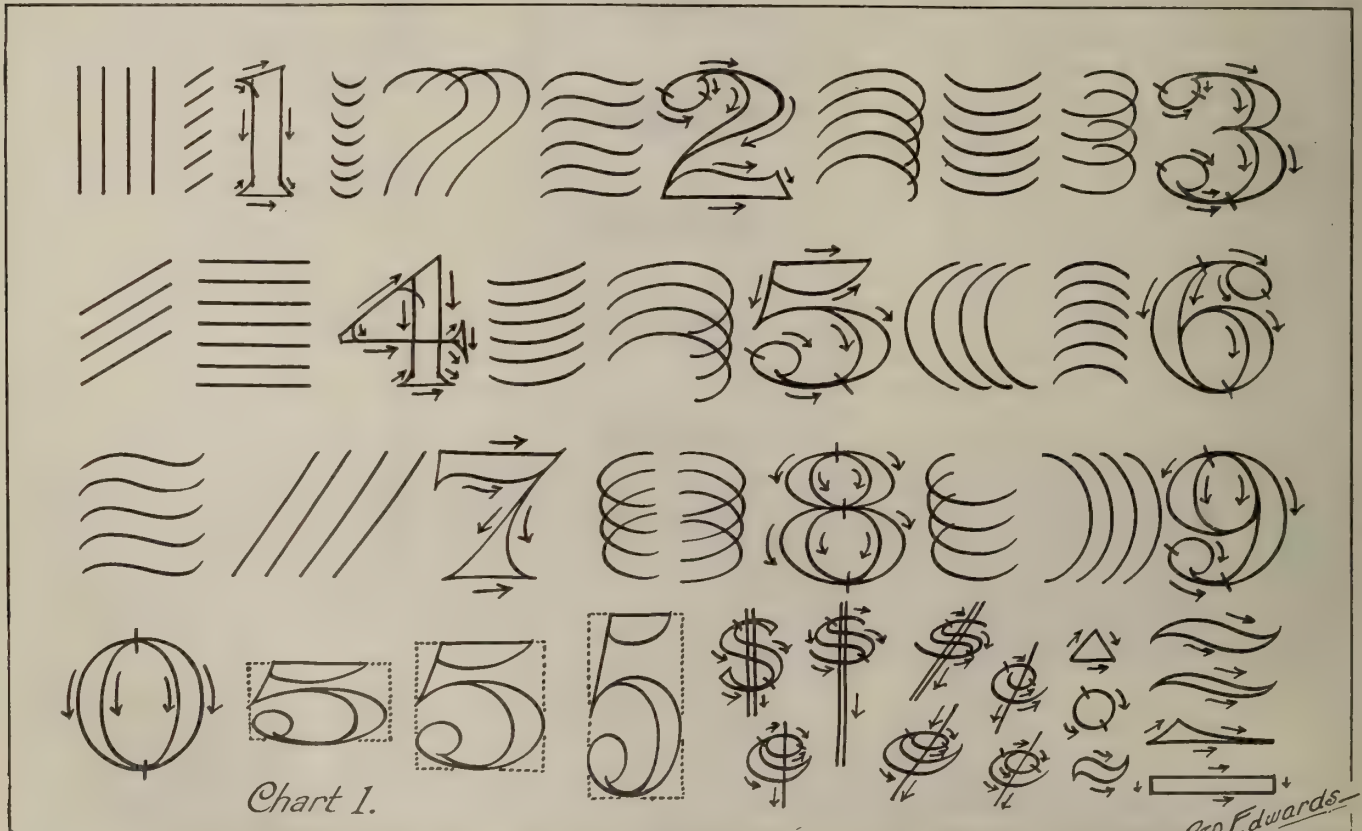 1 2 3
4 5 6
7 8 9
0 5 5 5 $ $ $ ¢ ¢ ¢ ¢
Chart 1.
Edwards